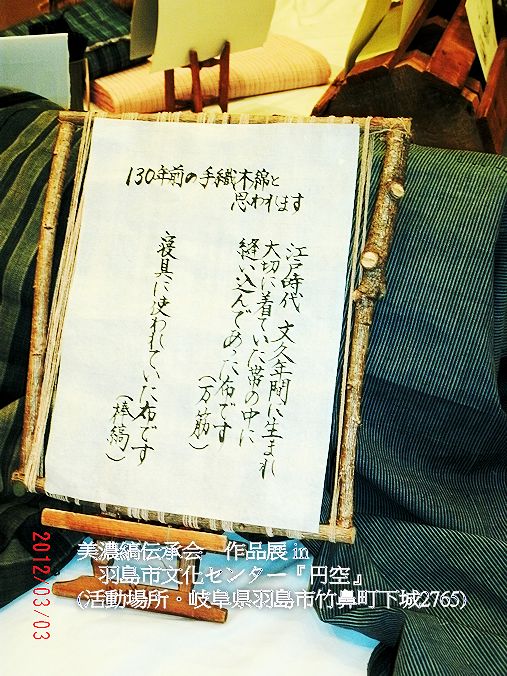 130年前の手織木綿と
思われます
江戸時代 文久年間に生まれ
大切に着ていた帯の中に
縫い込んであった布です
(万筋)
寝具に使われていた布です
(棒縞)
2012/03/03
美濃縞伝承会 作品展 in
羽島市文化センター『円空』
(活動場所・岐阜県羽島市竹鼻町下城2765)